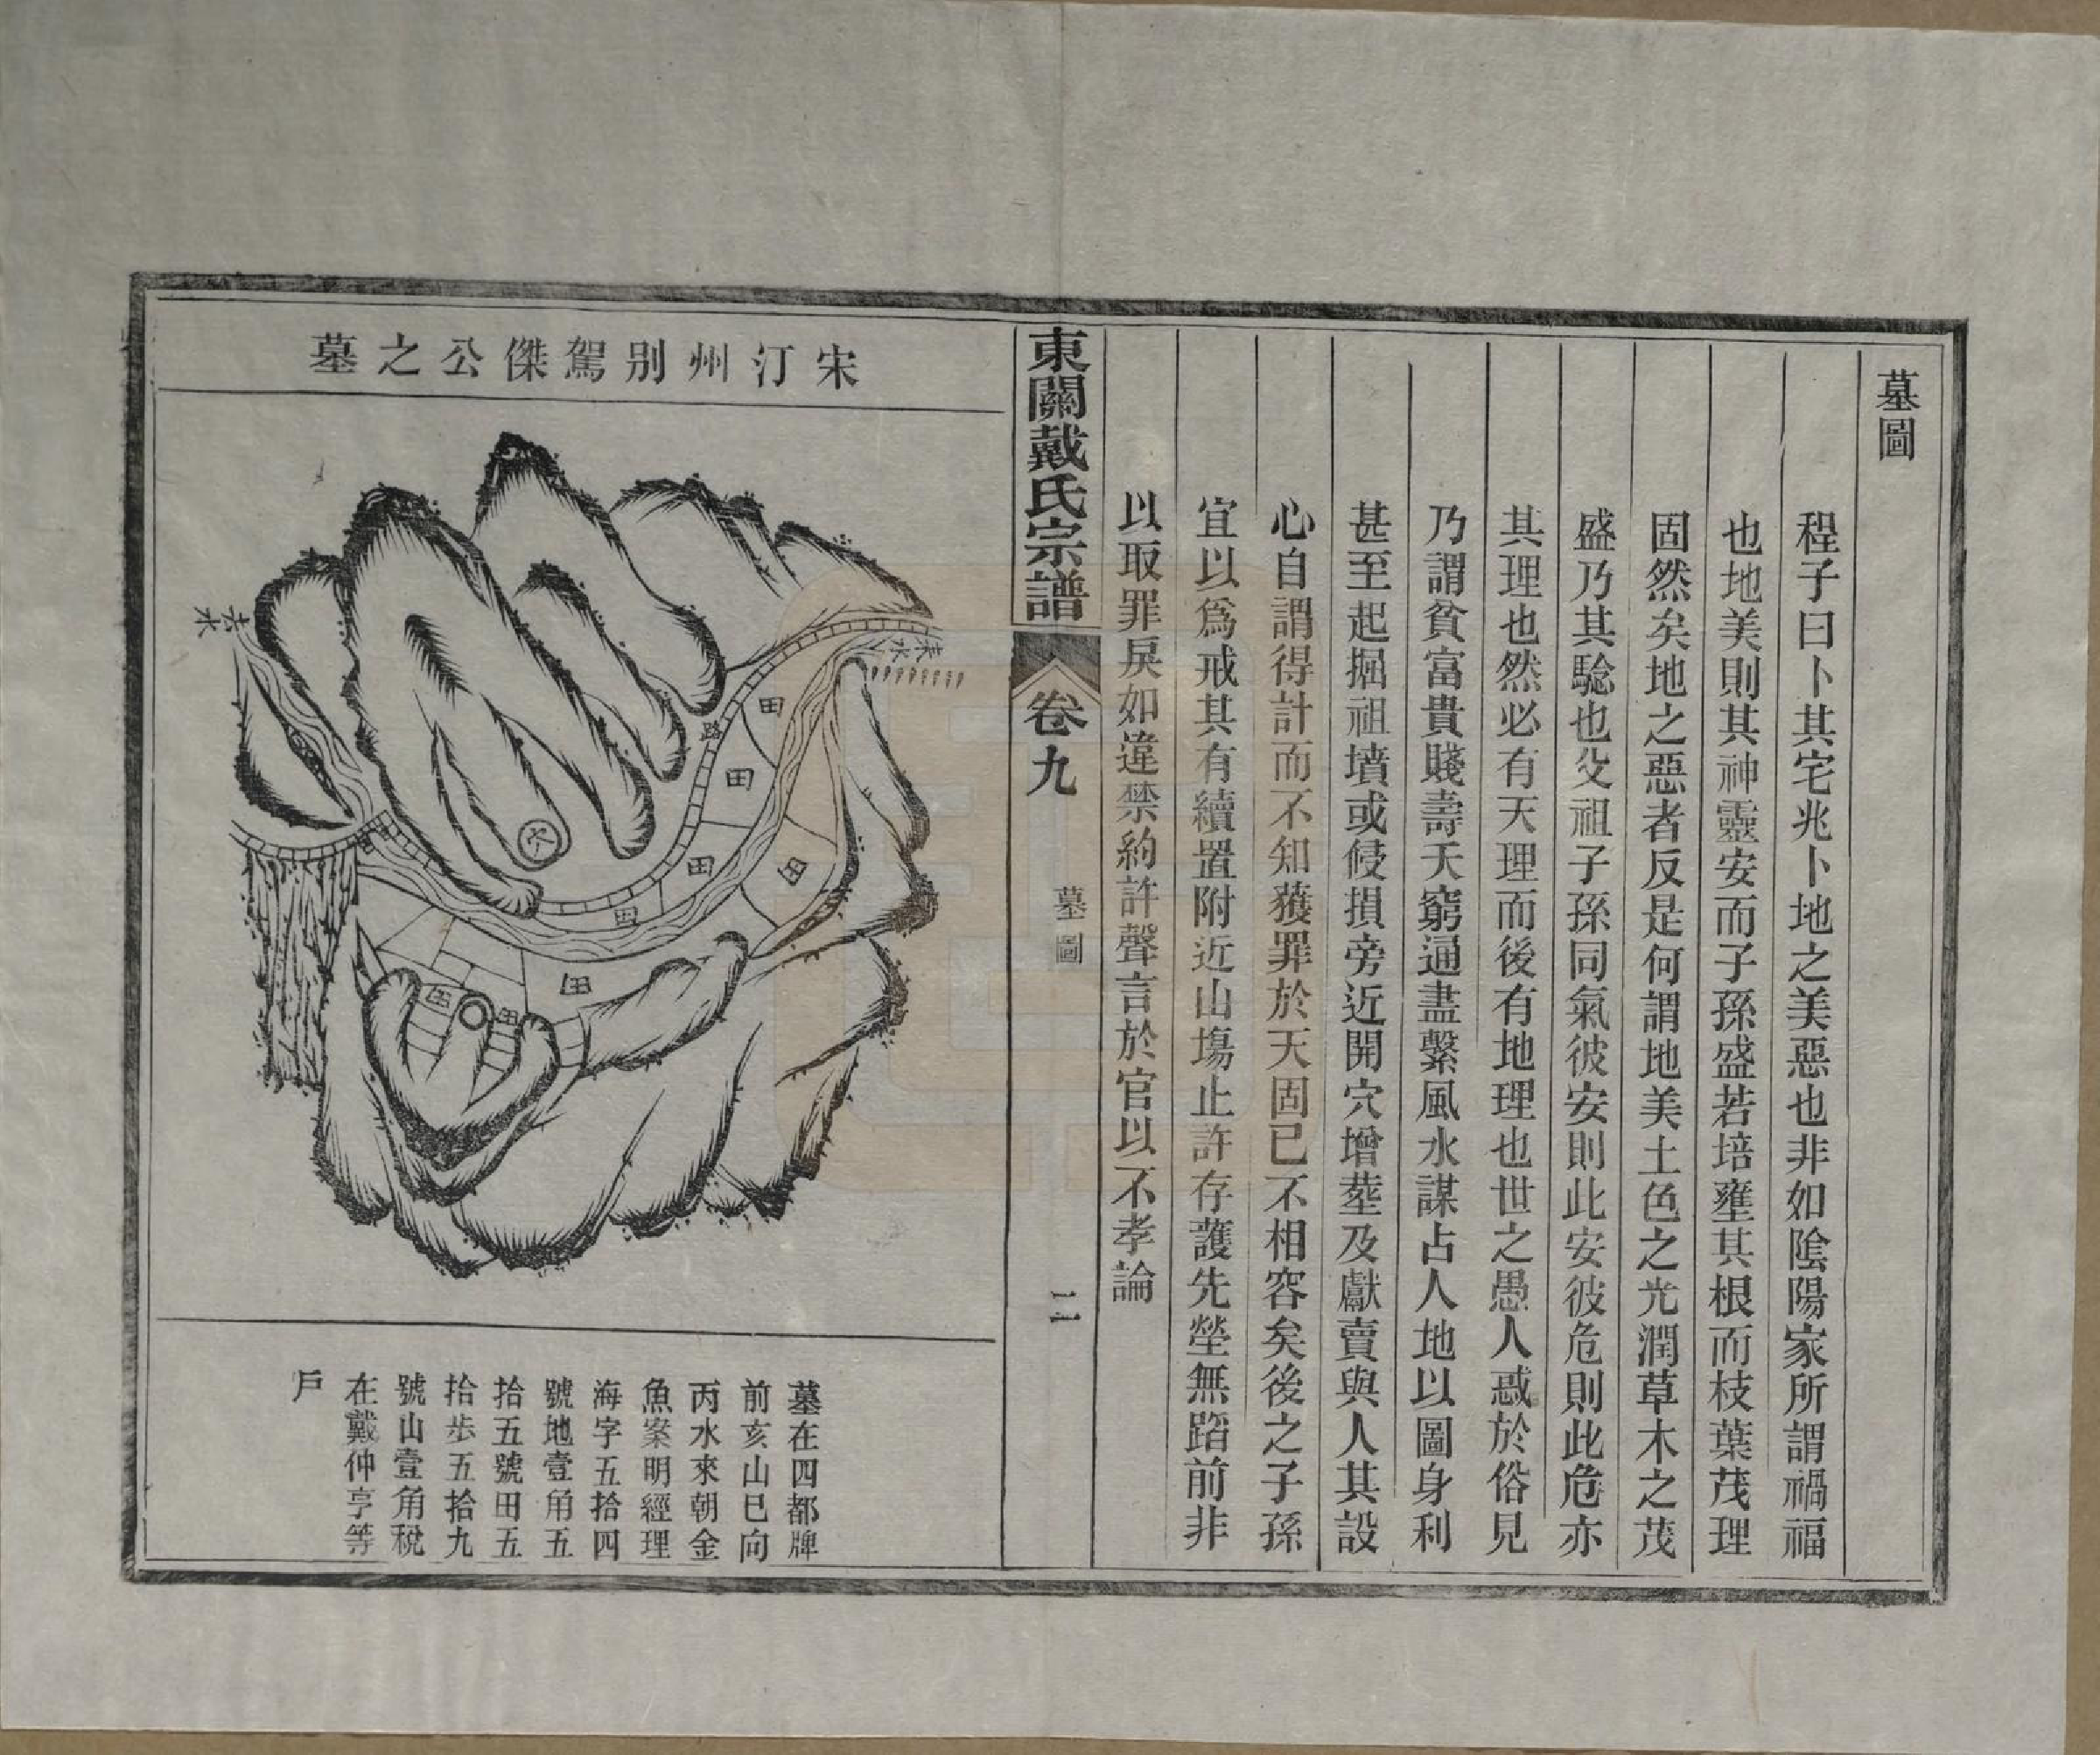 墓圖
程子曰卜其宅兆卜地之美惡也非如陰陽家所謂禍福
也地美則其神靈安而子孫盛若培壅其根而枝葉茂理
固然矣地之惡者反是何謂地美土色之光潤草木之茂
盛乃其驗也父祖子孫同氣彼安則此安彼危則此危亦
其理也然必有天理而後有地理也世之愚人惑於俗見
乃謂貧富貴賤壽夭窮通盡繫風水謀占人地以圖身利
甚至起掘祖墳或侵損旁近開穴增塟及獻賣與人其設
心自謂得計而不知獲罪於天固已不相容矣後之子孫
宜以爲戒其有續置附近山塲止許存護先塋無蹈前非
以取罪戾如違禁約許聲言於官以不孝論
東關戴氏宗譜
卷九
墓圖
二
宋汀州別駕傑公之墓
去水
來水
路
田
田
田
田
田
田
田
田
穴
墓在四都牌
前亥山巳向
丙水來朝金
魚案明經理
海字五拾四
號地壹角五
拾五號田五
拾步五拾九
號山壹角稅
在戴仲亨等
戶